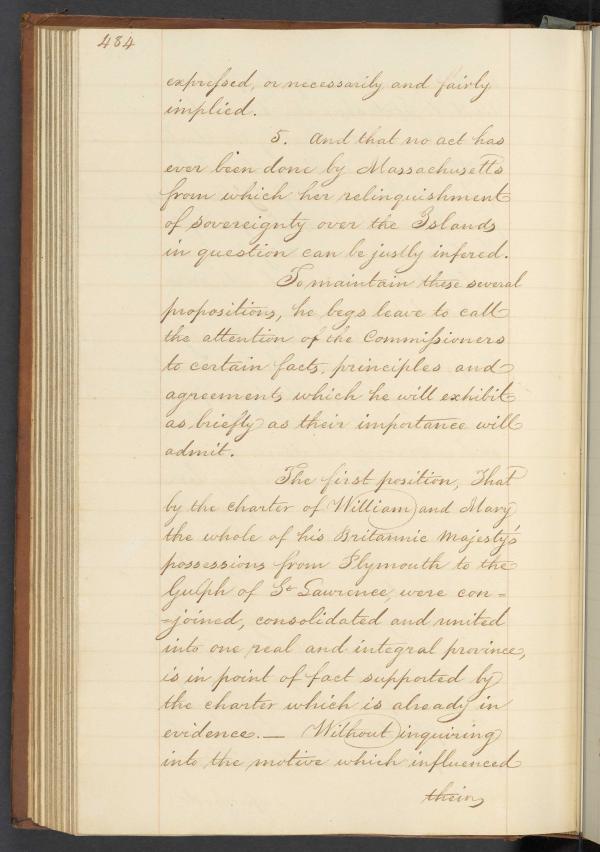 484
expressed, or necessarily and fairly
implied.
5. And that no act has
ever been done by Massachusetts
from which her relinquishment
of sovereignty over the Islands
in question can be justly infered.
To maintain these several
propositions, he begs leave to call
the attention of the Commissioners
to certain facts, principles and
agreements which he will exhibit
as briefly as their importance will
admit.
The first position, That
by the charter of William and Mary
the whole of his Britannic Majesty's
possessions from Plymouth to the
Gulph of St Lawrence, were con=
=joined, consolidated and united
into one real and integral province,
is in point of fact supported by
the charter which is already in
evidence. — Without inquiring
into the motive which influenced
their